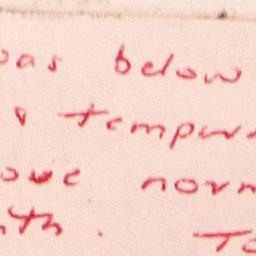 was below
& tempur
ove norm
nth. To